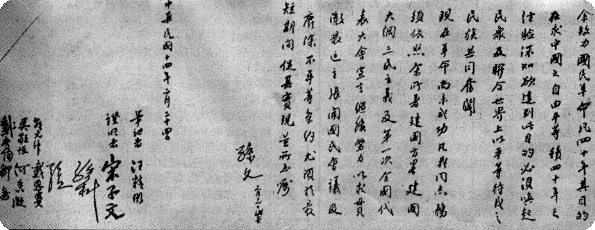 余致力國民革命凡四十年其目的
在求中國之自由平等積四十年之
經驗深知欲達到此目的必須喚起
民眾及聯合世界上以平等待我之
民族共同奮鬥
現在革命尚未成功凡我同志務
須依照余所著建國方略建國
大綱三民主義及第一次全國代
表大會宣言繼續努力以求貫
澈最近主張開國民會議及
廢除不平等條約尤須於最
短期間促其實現是所至囑
孫文
中華民國十四年二月二十四日
筆記者 汪精衛
證明者 宋子文
孫科
邵元沖 戴恩賽
吳敬恆 何香凝
戴季陶 鄒魯